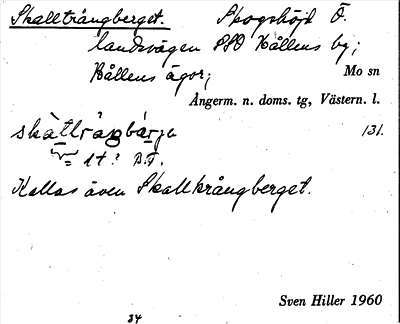 Skallträngberget. Skogshöjd Ö.
landsvägen SSO Kållens by;
Kållens ägor;
Mo sn
Ångerm. n. doms. tg, Västern. l.
131.
1 t? B.T.
Kallas även Skallkrångberget.
Sven Hiller 1960
34